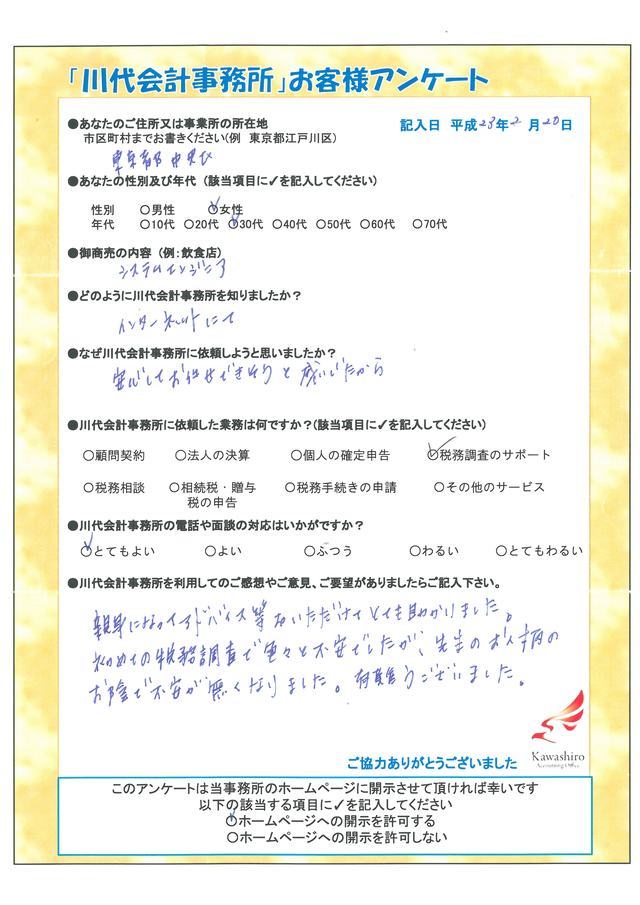 「川代会計事務所」お客様アンケート
●あなたのご住所又は事業所の所在地
市区町村までお書きください(例 東京都江戸川区)
記入日 平成23年2月20日
東京都中央区
●あなたの性別及び年代（該当項目に✓を記入してください）
性別 ○男性 ○女性
年代 ○10代 ○20代 ○30代 ○40代 ○50代 ○60代 ○70代
●御商売の内容（例：飲食店）
システムエンジニア
●どのように川代会計事務所を知りましたか？
インターネットにて
●なぜ川代会計事務所に依頼しようと思いましたか？
安心してお任せできそうと感じたから
●川代会計事務所に依頼した業務は何ですか？(該当項目に✓を記入してください)
○顧問契約 ○法人の決算 ○個人の確定申告 ○税務調査のサポート
○税務相談 ○相続税・贈与 ○税務手続きの申請 ○その他のサービス
税の申告
●川代会計事務所の電話や面談の対応はいかがですか？
○とてもよい ○よい ○ふつう ○わるい ○とてもわるい
●川代会計事務所を利用してのご感想やご意見、ご要望がありましたらご記入下さい。
親身になってアドバイス等をいただけてとても助かりました。
初めての税務調査で色々と不安でしたが、先生のお人柄の
お陰で不安が無くなりました。有難うございました。
Kawashiro
Accounting Office
ご協力ありがとうございました
このアンケートは当事務所のホームページに開示させて頂ければ幸いです
以下の該当する項目に✓を記入してください
○ホームページへの開示を許可する
○ホームページへの開示を許可しない